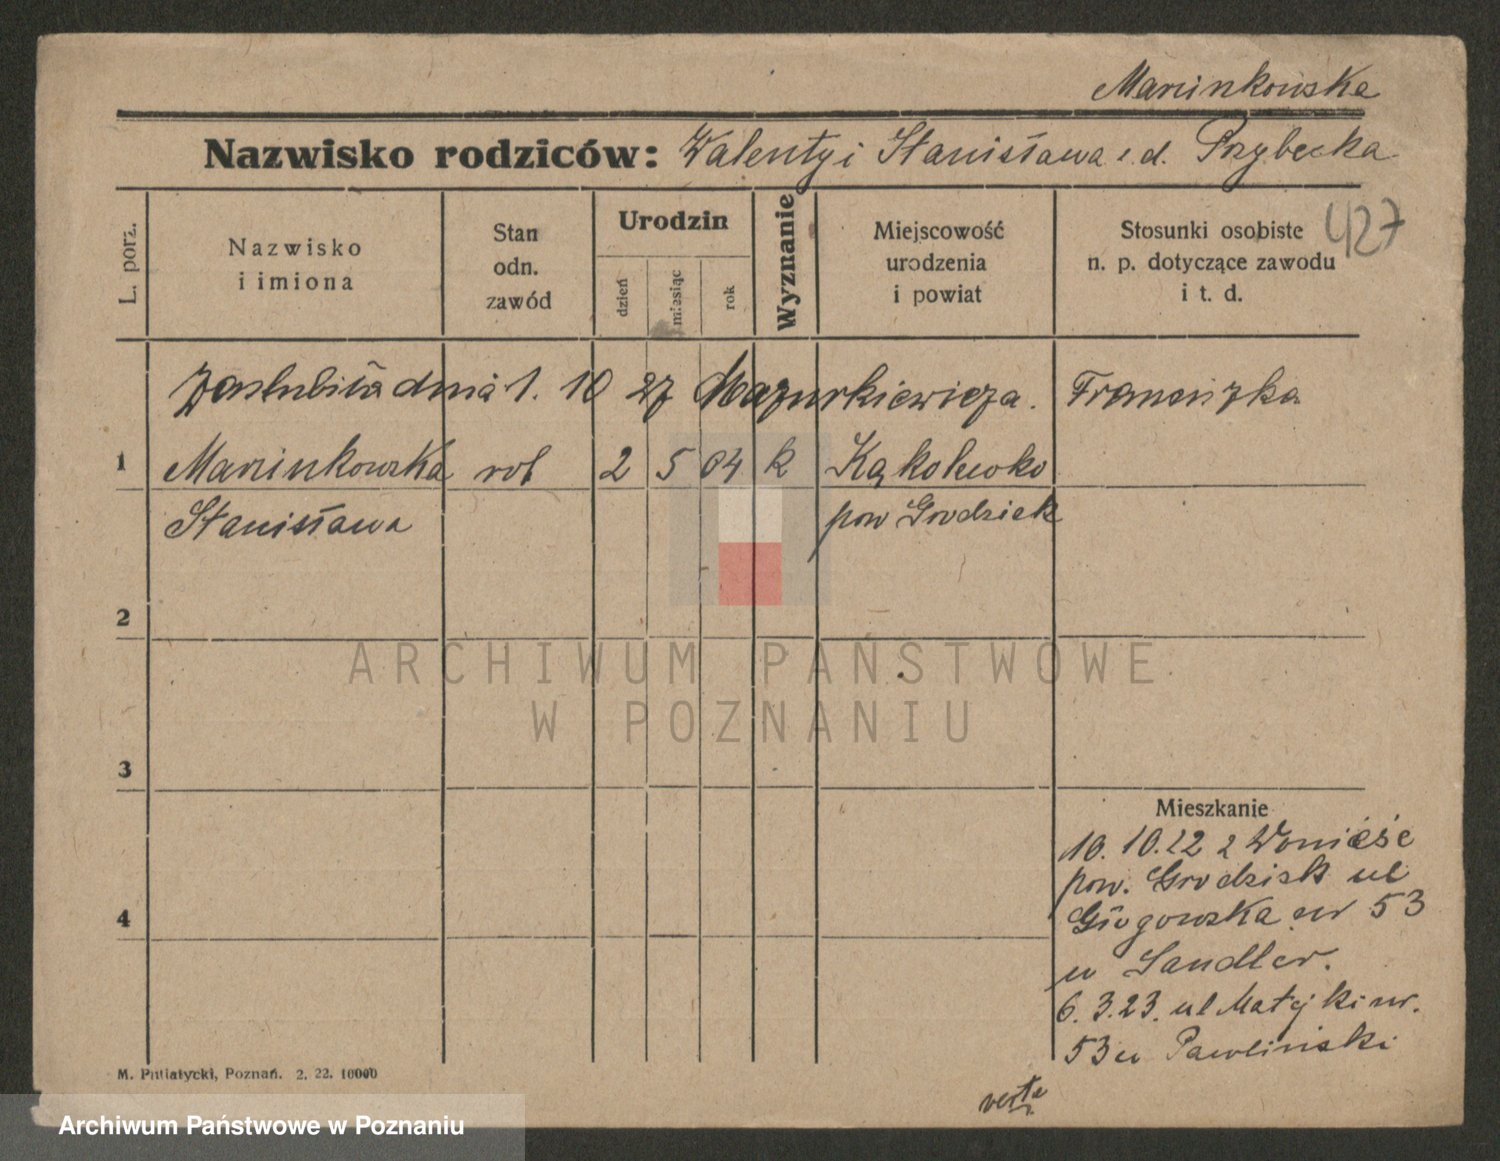 Marcinkowska
Nazwisko rodziców: Walenty i Stanisława z d. Przybecka
427
L. porz.
Nazwisko i imiona
Stan odn. zawód
Urodzin
dzień
miesiąc
rok
Wyznanie
Miejscowość urodzenia i powiat
Stosunki osobiste n. p. dotyczące zawodu i t. d.
Zaslubiła dnia 1. 10 27 Mazurkiewicza. Franciszka
1 Marcinkowska rob 2 5 04 k Kąkolewko
Stanisława pow Grodzisk
2
ARCHIWUM PAŃSTWOWE
W POZNANIU
3
Mieszkanie
10. 10.22 z Wonieść
pow. Grodzisk ul
4
Głogowska nr 53
u Sandler.
6. 3.23. ul Matejki nr.
53 u Pawliński
M. Putiatycki, Poznań. 2. 22. 10000
verte
Archiwum Państwowe w Poznaniu